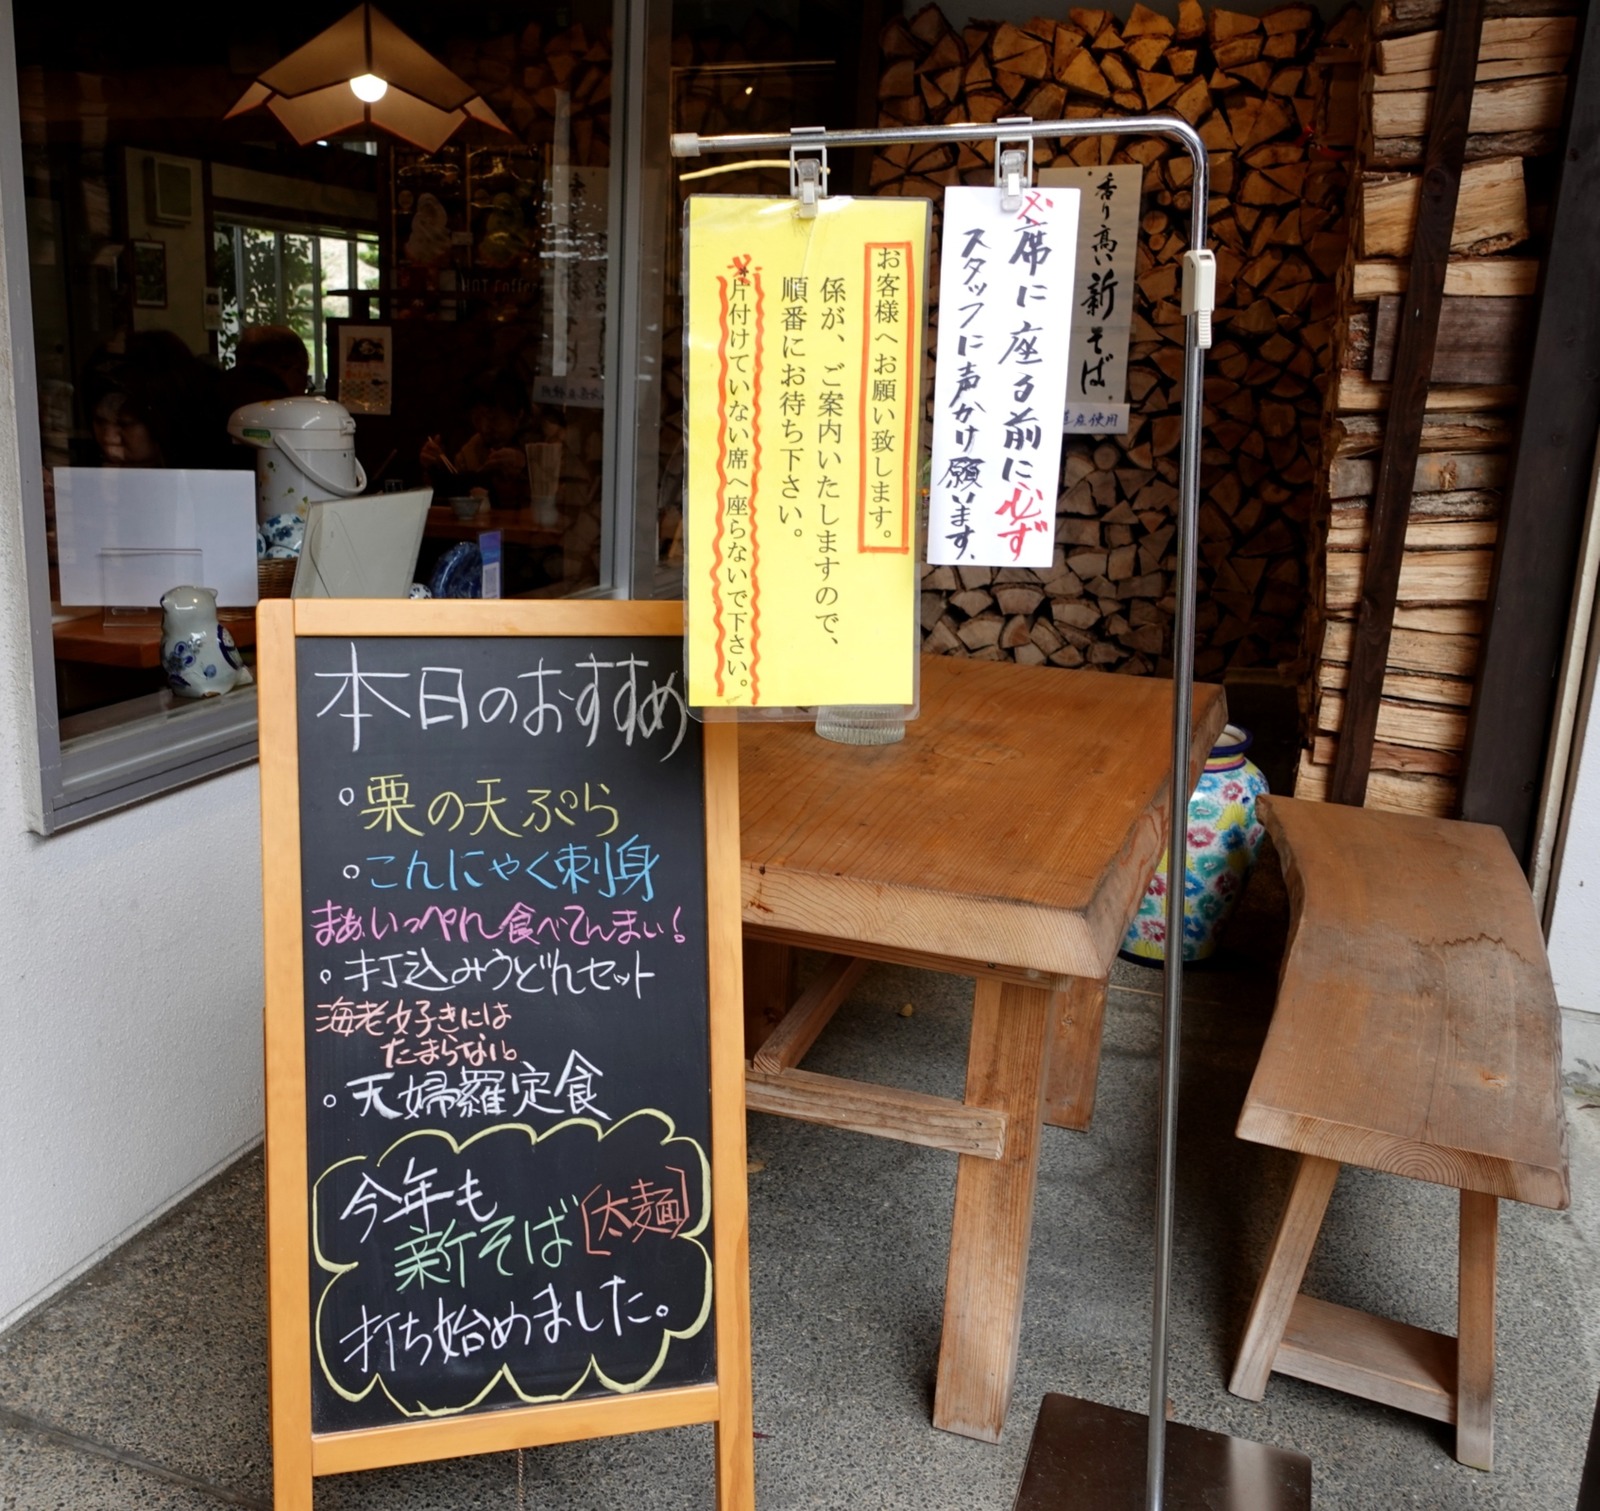 本日のおすすめ
栗の天ぷら
こんにゃく刺身
まあいっぺん食べてんまい!
打込みうどんセット
海老好きには
たまらない。
天婦羅定食
今年も
新そば[太麺]
打ち始めました。
お客様へお願い致します。
係が、ご案内いたしますので、
順番にお待ち下さい。
*片付けていない席へ座らないで下さい。
※席に座る前に必ず
スタッフに声かけ願います。
香り高い新そば。
産使用